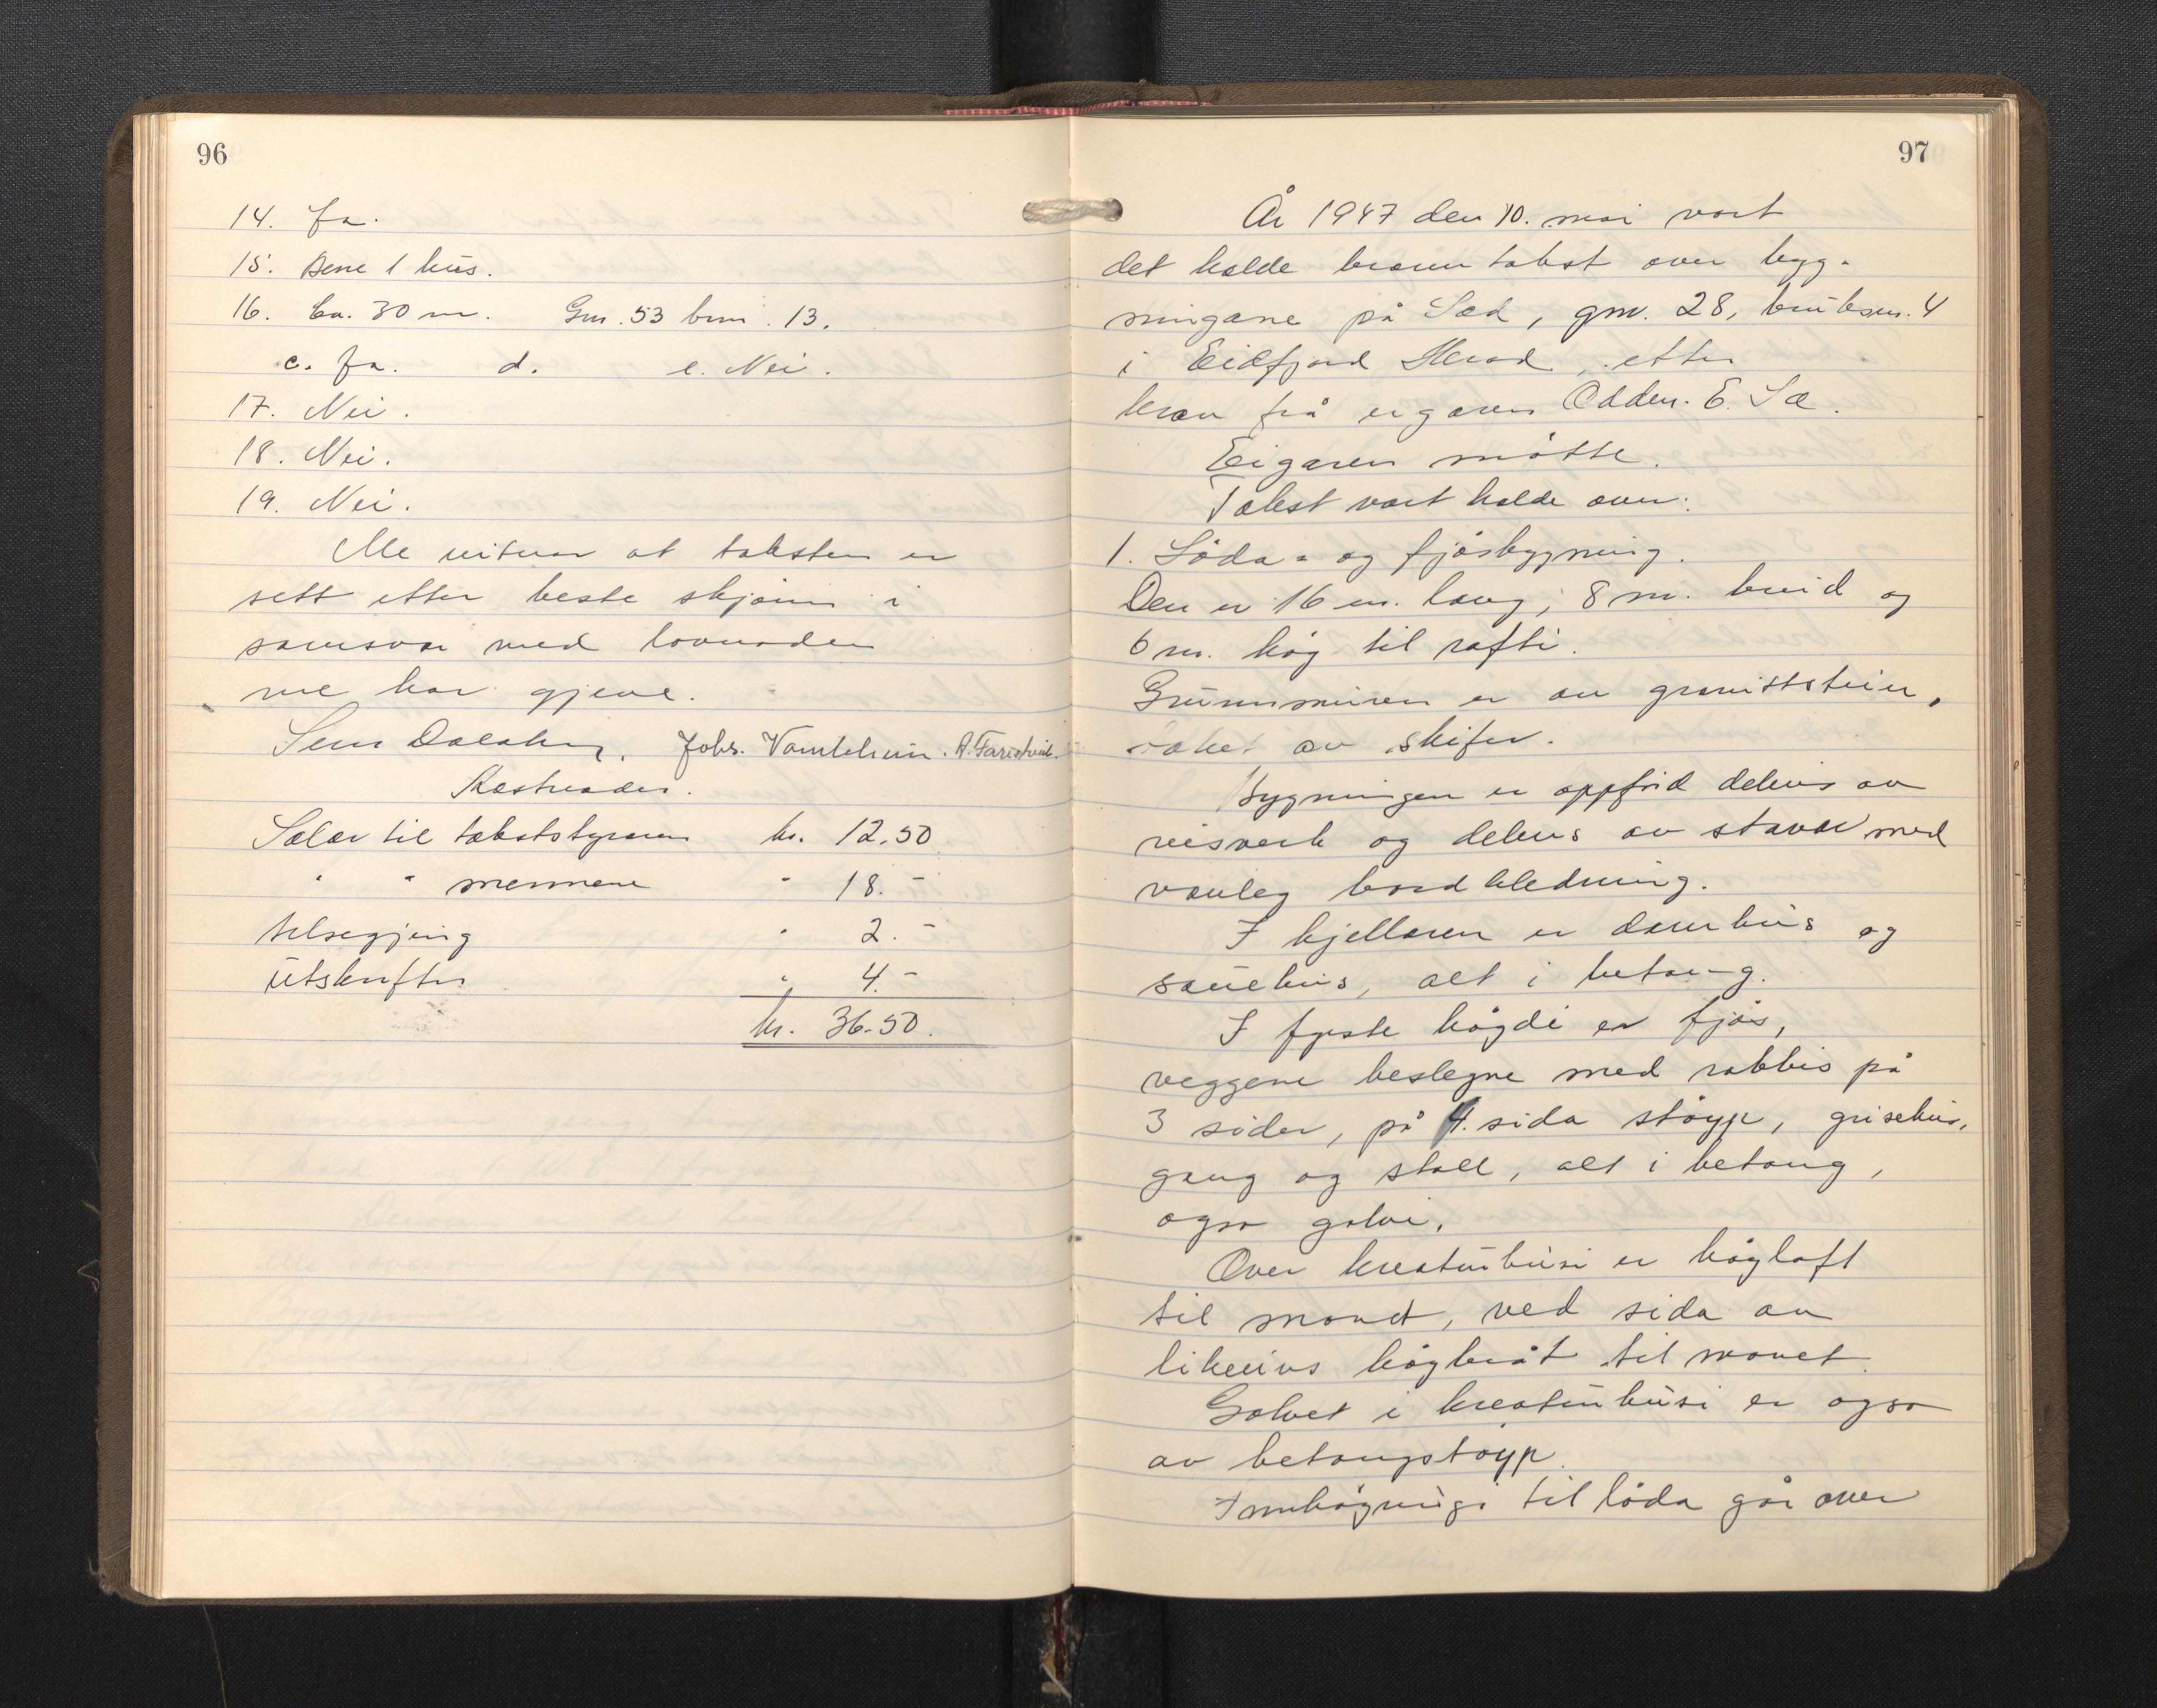 96
14. Ja.
15. Bere 1 hus.
16. Ca. 30 m. Gnr. 53 bnr. 13.
c. Ja. d. e. Nei.
17. Nei.
18. Nei.
19. Nei.
Me vitnar at taksten er
sett etter beste skjønn i
samsvar med lovnaden
me har gjeve.
Johs.
Kostnader.
Salær til takststyraren kr. 12.50
" " mennene " 18.-
tilsegjing " 2.-
Utskrifter " 4.-
kr. 36.50.
97
År 1947 den 10. mai vart
det halde branntakst over byg-
ningane på Sæd, gnr. 28, bruksnr. 4
i Eidfjord Herad, etter
krav frå eigaren E. Sæ.
Eigaren møtte.
Takst vart halde over:
1. Löda- og fjösbygning.
Den er 16 m. lang, 8 m. breid og
6 m. høg til rafti.
Grunnmuren er av granittstein,
taket av skifer.
Bygningen er oppförd delvis av
reisverk og delvis av stavar med
vanleg bordkledning.
I kjellaren er dombus og
sauehus, alt i betong.
I fyrste högdi er fjös,
veggene beslegne med rabbis på
3 sider, på 4. sida støyp, grisehus,
gang og stall, alt i betong,
ogso golvi.
Over kreaturhusi er höyloft
til mønet, ved sida av
likeeins höybråt til mønet.
Golvet i kreaturhusi er ogso
av betongstøyp.
Innhöyningi til löda går over